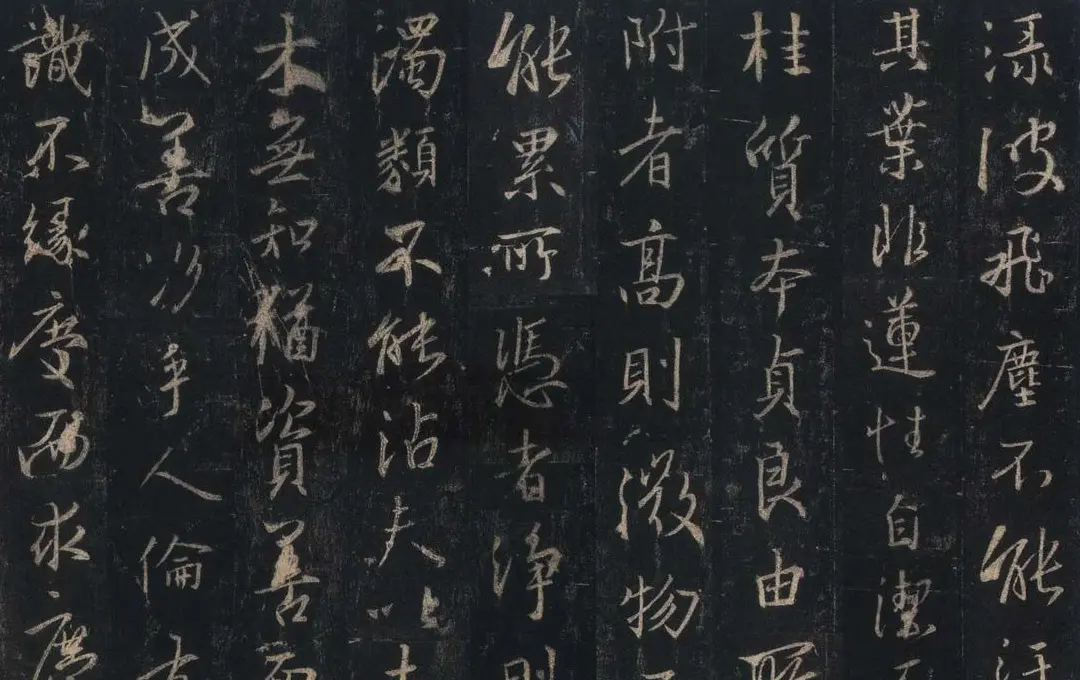 淥波飛塵不能汙
其葉非蓮性自潔
桂質本貞良由所
附者高則微物
能累所憑者淨則
濁類不能沾夫以
木無知猶資善而
成善況乎人倫有
識不緣慶而求慶